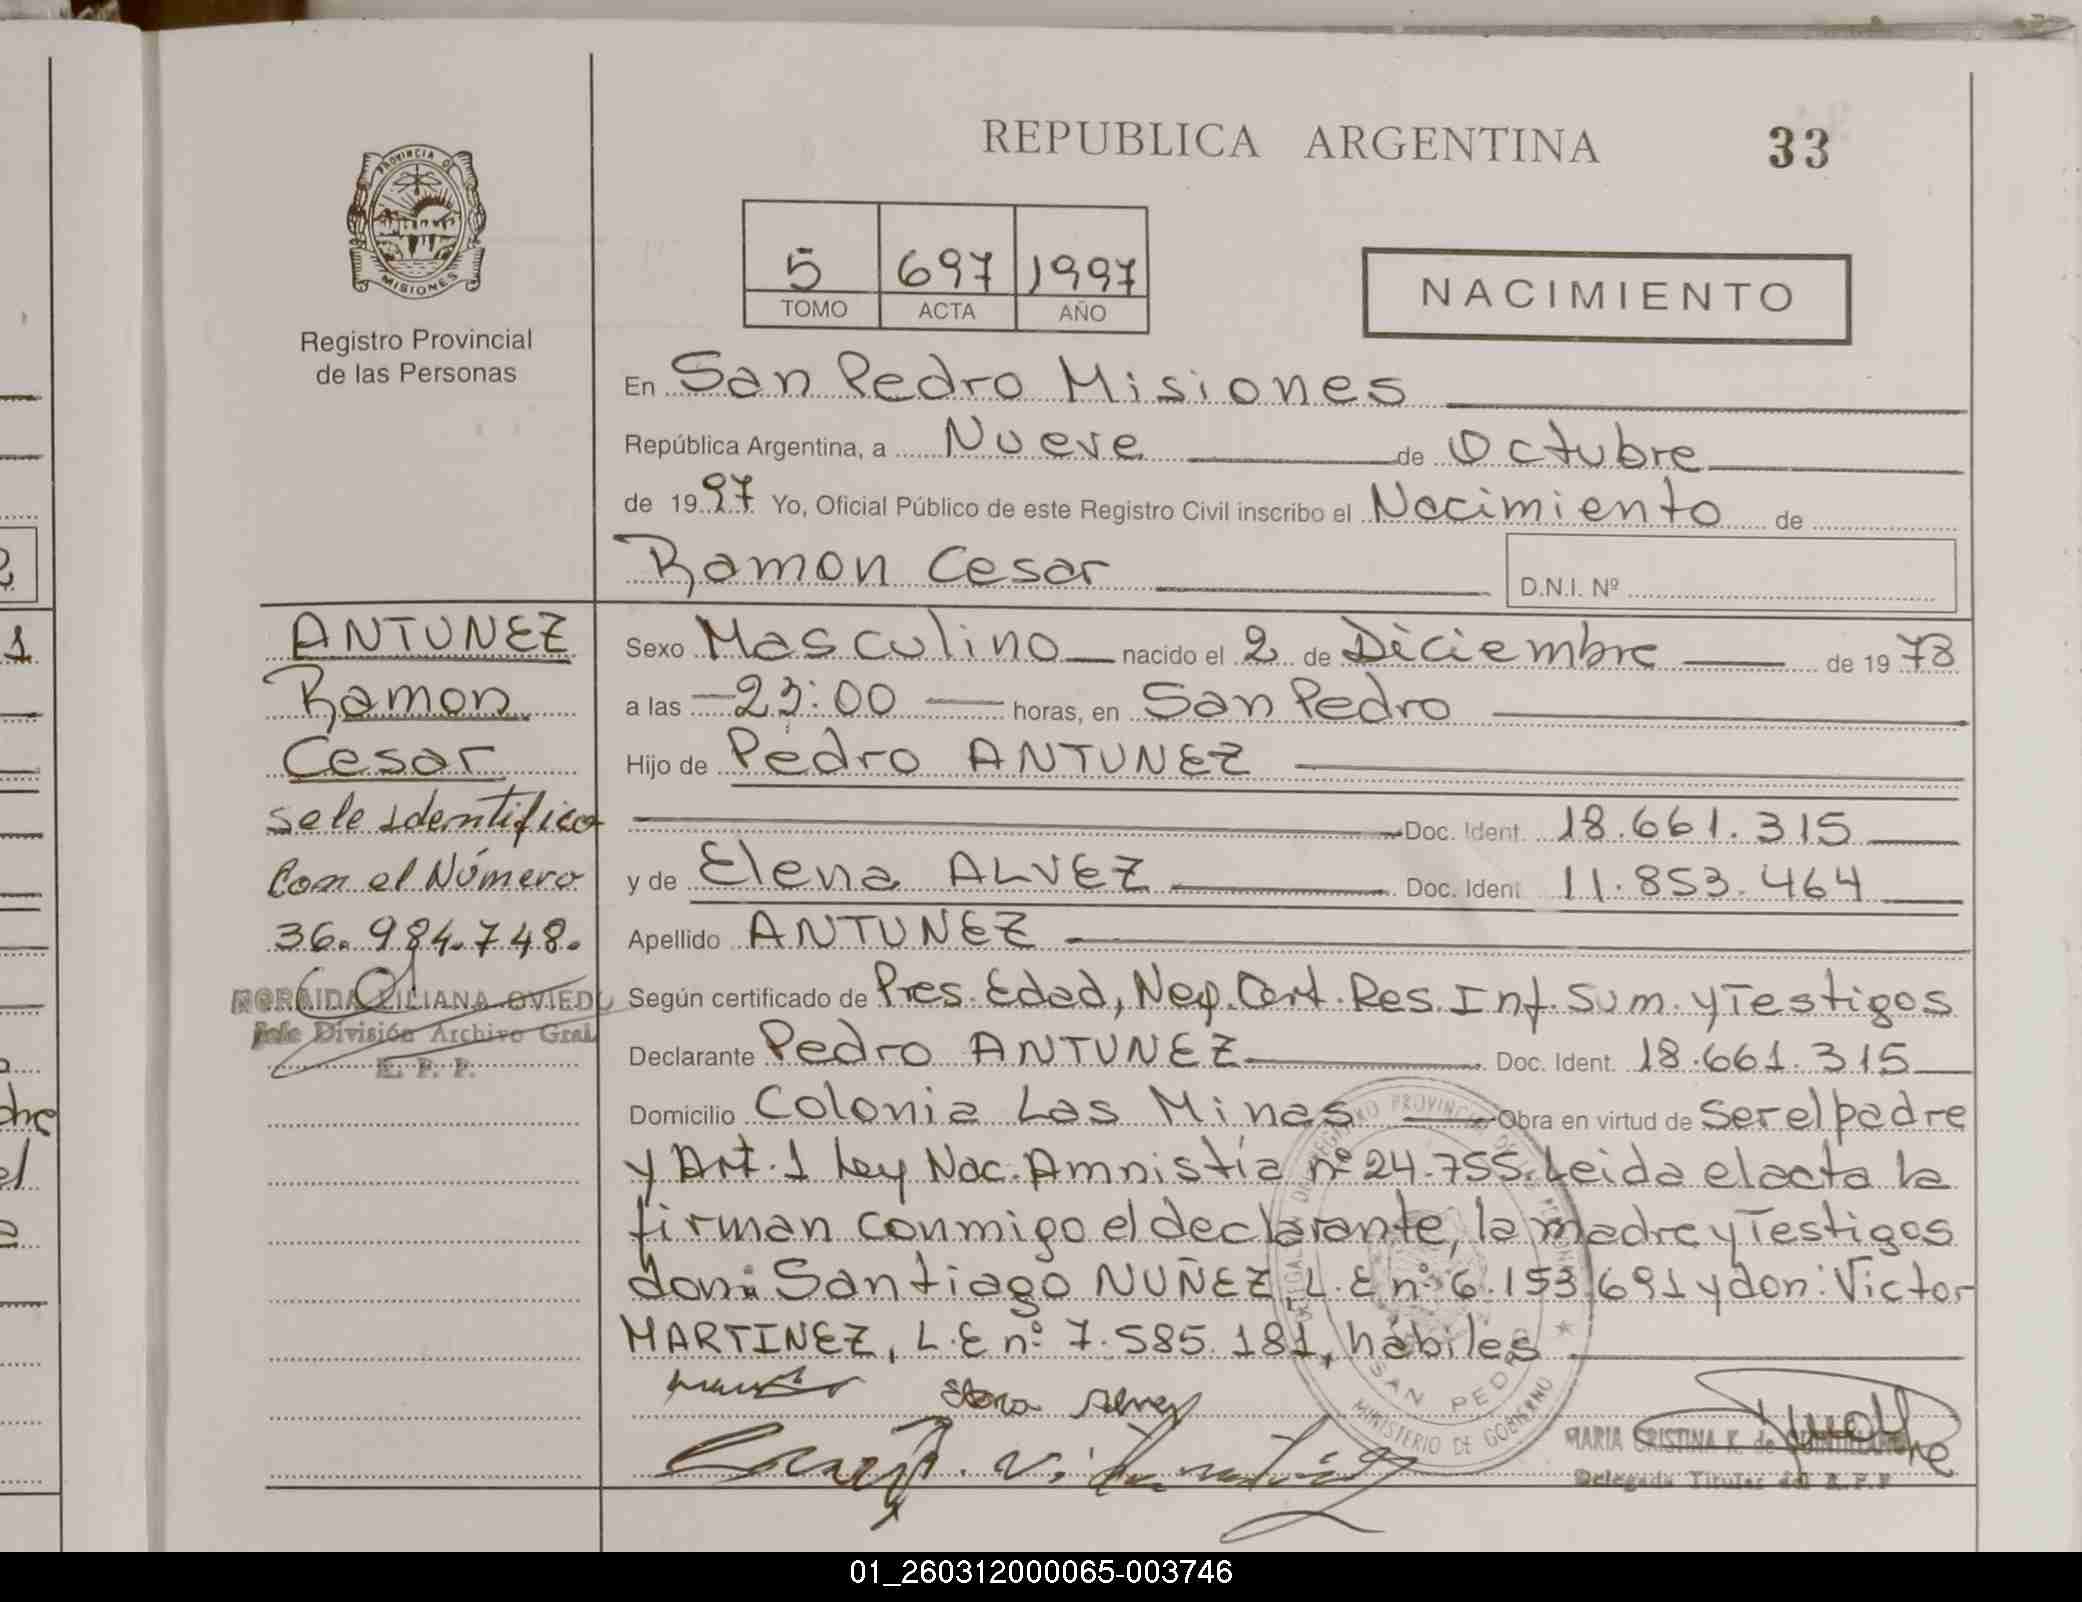 REPUBLICA ARGENTINA
33
PROVINCIA DE
MISIONES
Registro Provincial
de las Personas
5 697 1997
TOMO ACTA AÑO
NACIMIENTO
En San Pedro Misiones
República Argentina, a Nueve de Octubre
de 1997 Yo, Oficial Público de este Registro Civil inscribo el Nacimiento de
Ramon Cesar
D.N.I. Nº
ANTUNEZ
Ramon
Cesar
se le identifico
Con el Número
36.984.748.
LILIANA OVIEDO
Jefe División Archivo Gral.
R. P. P.
Sexo Masculino nacido el 2 de Diciembre de 1978
a las 23:00 horas, en San Pedro
Hijo de Pedro ANTUNEZ
Doc. Ident. 18.661.315
y de Elena ALVEZ Doc. Ident 11.853.464
Apellido ANTUNEZ
Según certificado de Pres. Edad, Neg. Cert. Res. Inf. Sum. y Testigos
Declarante Pedro ANTUNEZ Doc. Ident. 18.661.315
Domicilio Colonia Las Minas Obra en virtud de Ser el padre
y Art. 1 Ley Nac. Amnistía nº 24.755. Leida el acta la
firman conmigo el declarante, la madre y Testigos
don: Santiago NUÑEZ, L.E nº 6.153.691 y don: Victor
MARTINEZ, L.E nº 7.585.181, hábiles
MINISTERIO DE GOBIERNO
SAN PEDRO
MARIA CRISTINA K. de
Delegada Titular del R.P.P
01_260312000065-003746